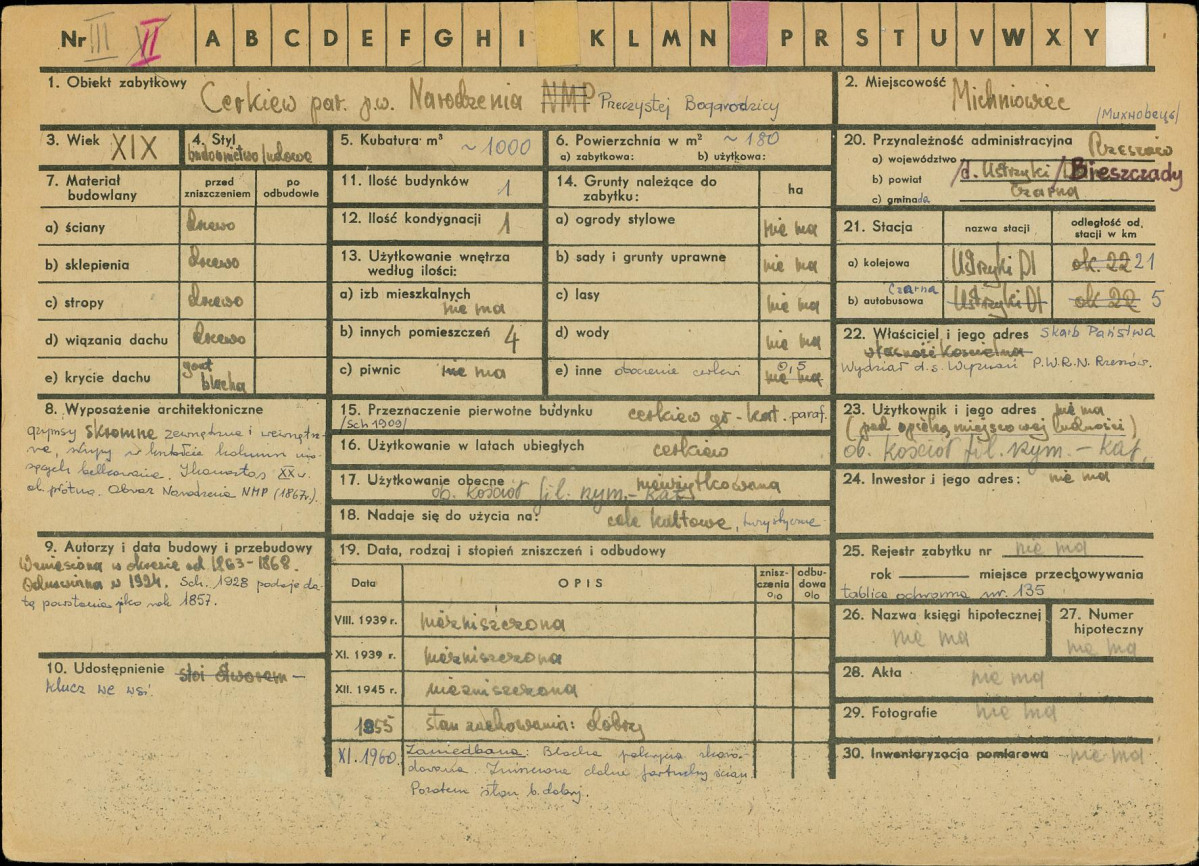 Nr III VI A B C D E F G H I K L M N P R S T U V W X Y
1. Obiekt zabytkowy Cerkiew par. p.w. Narodzenia NMP Preczystej Bogarodzicy
2. Miejscowość Michniowiec
3. Wiek XIX
4. Styl budownictwo ludowe
5. Kubatura m³ ~ 1000
6. Powierzchnia w m² ~ 180
a) zabytkowa: b) użytkowa:
7. Materiał budowlany
przed zniszczeniem
po odbudowie
a) ściany drewo
b) sklepienia drewo
c) stropy drewo
d) wiązania dachu drewo
e) krycie dachu gont blacha
11. Ilość budynków 1
12. Ilość kondygnacji 1
13. Użytkowanie wnętrza według ilości:
a) izb mieszkalnych nie ma
b) innych pomieszczeń 4
c) piwnic nie ma
14. Grunty należące do zabytku: ha
a) ogrody stylowe nie ma
b) sady i grunty uprawne nie ma
c) lasy nie ma
d) wody nie ma
e) inne otoczenie cerkwi 0,5 nie ma
20. Przynależność administracyjna
a) województwo Rzeszów
b) powiat d. Ustrzyki / Bieszczady
c) gminada Czarna
21. Stacja nazwa stacji odległość od stacji w km
a) kolejowa Ustrzyki Dl ok. 22 21
b) autobusowa Czarna Ustrzyki Dl ok 22 5
22. Właściciel i jego adres Skarb Państwa
własność Kościelna
Wydział d.s. Wyznań P.W.R.N. Rzeszów.
8. Wyposażenie architektoniczne
gzymsy skromne zewnętrzne i wewnętrz-
ne, słupy w kształcie kolumn
belkowanie. Ikonostas XX w.
ol. płótno. Obraz Narodzenia NMP (1867r).
15. Przeznaczenie pierwotne budynku cerkiew gr-kat. paraf.
/Sch 1909/
16. Użytkowanie w latach ubiegłych cerkiew
17. Użytkowanie obecne nieużytkowana
ob. kościół fil. rzym.- kat.
18. Nadaje się do użycia na: cele kultowe, turystyczne
23. Użytkownik i jego adres nie ma
(pod opieką miejscowej ludności)
ob. kościół fil. rzym. - kat.
24. Inwestor i jego adres: nie ma
9. Autorzy i data budowy i przebudowy
Wzniesiona w okresie od 1863-1868.
Odnowiona w 1924. Sch. 1928 podaje da-
tę powstania jako rok 1857.
10. Udostępnienie stoi otworem -
klucz we wsi.
19. Data, rodzaj i stopień zniszczeń i odbudowy
Data OPIS zniszczenia % odbudowa %
VIII. 1939 r. niezniszczona
XI. 1939 r. niezniszczona
XII. 1945 r. niezniszczona
1955 stan zachowania: dobry
XI. 1960. Zaniedbana: Blacha pokrycia skoro-
dowana. Zniszczone dolne fartuchy ścian
Pozatem stan b. dobry.
25. Rejestr zabytku nr nie ma
rok miejsce przechowywania
tablica ochronna nr. 135
26. Nazwa księgi hipotecznej nie ma
27. Numer hipoteczny nie ma
28. Akta nie ma
29. Fotografie nie ma
30. Inwentaryzacja pomiarowa nie ma